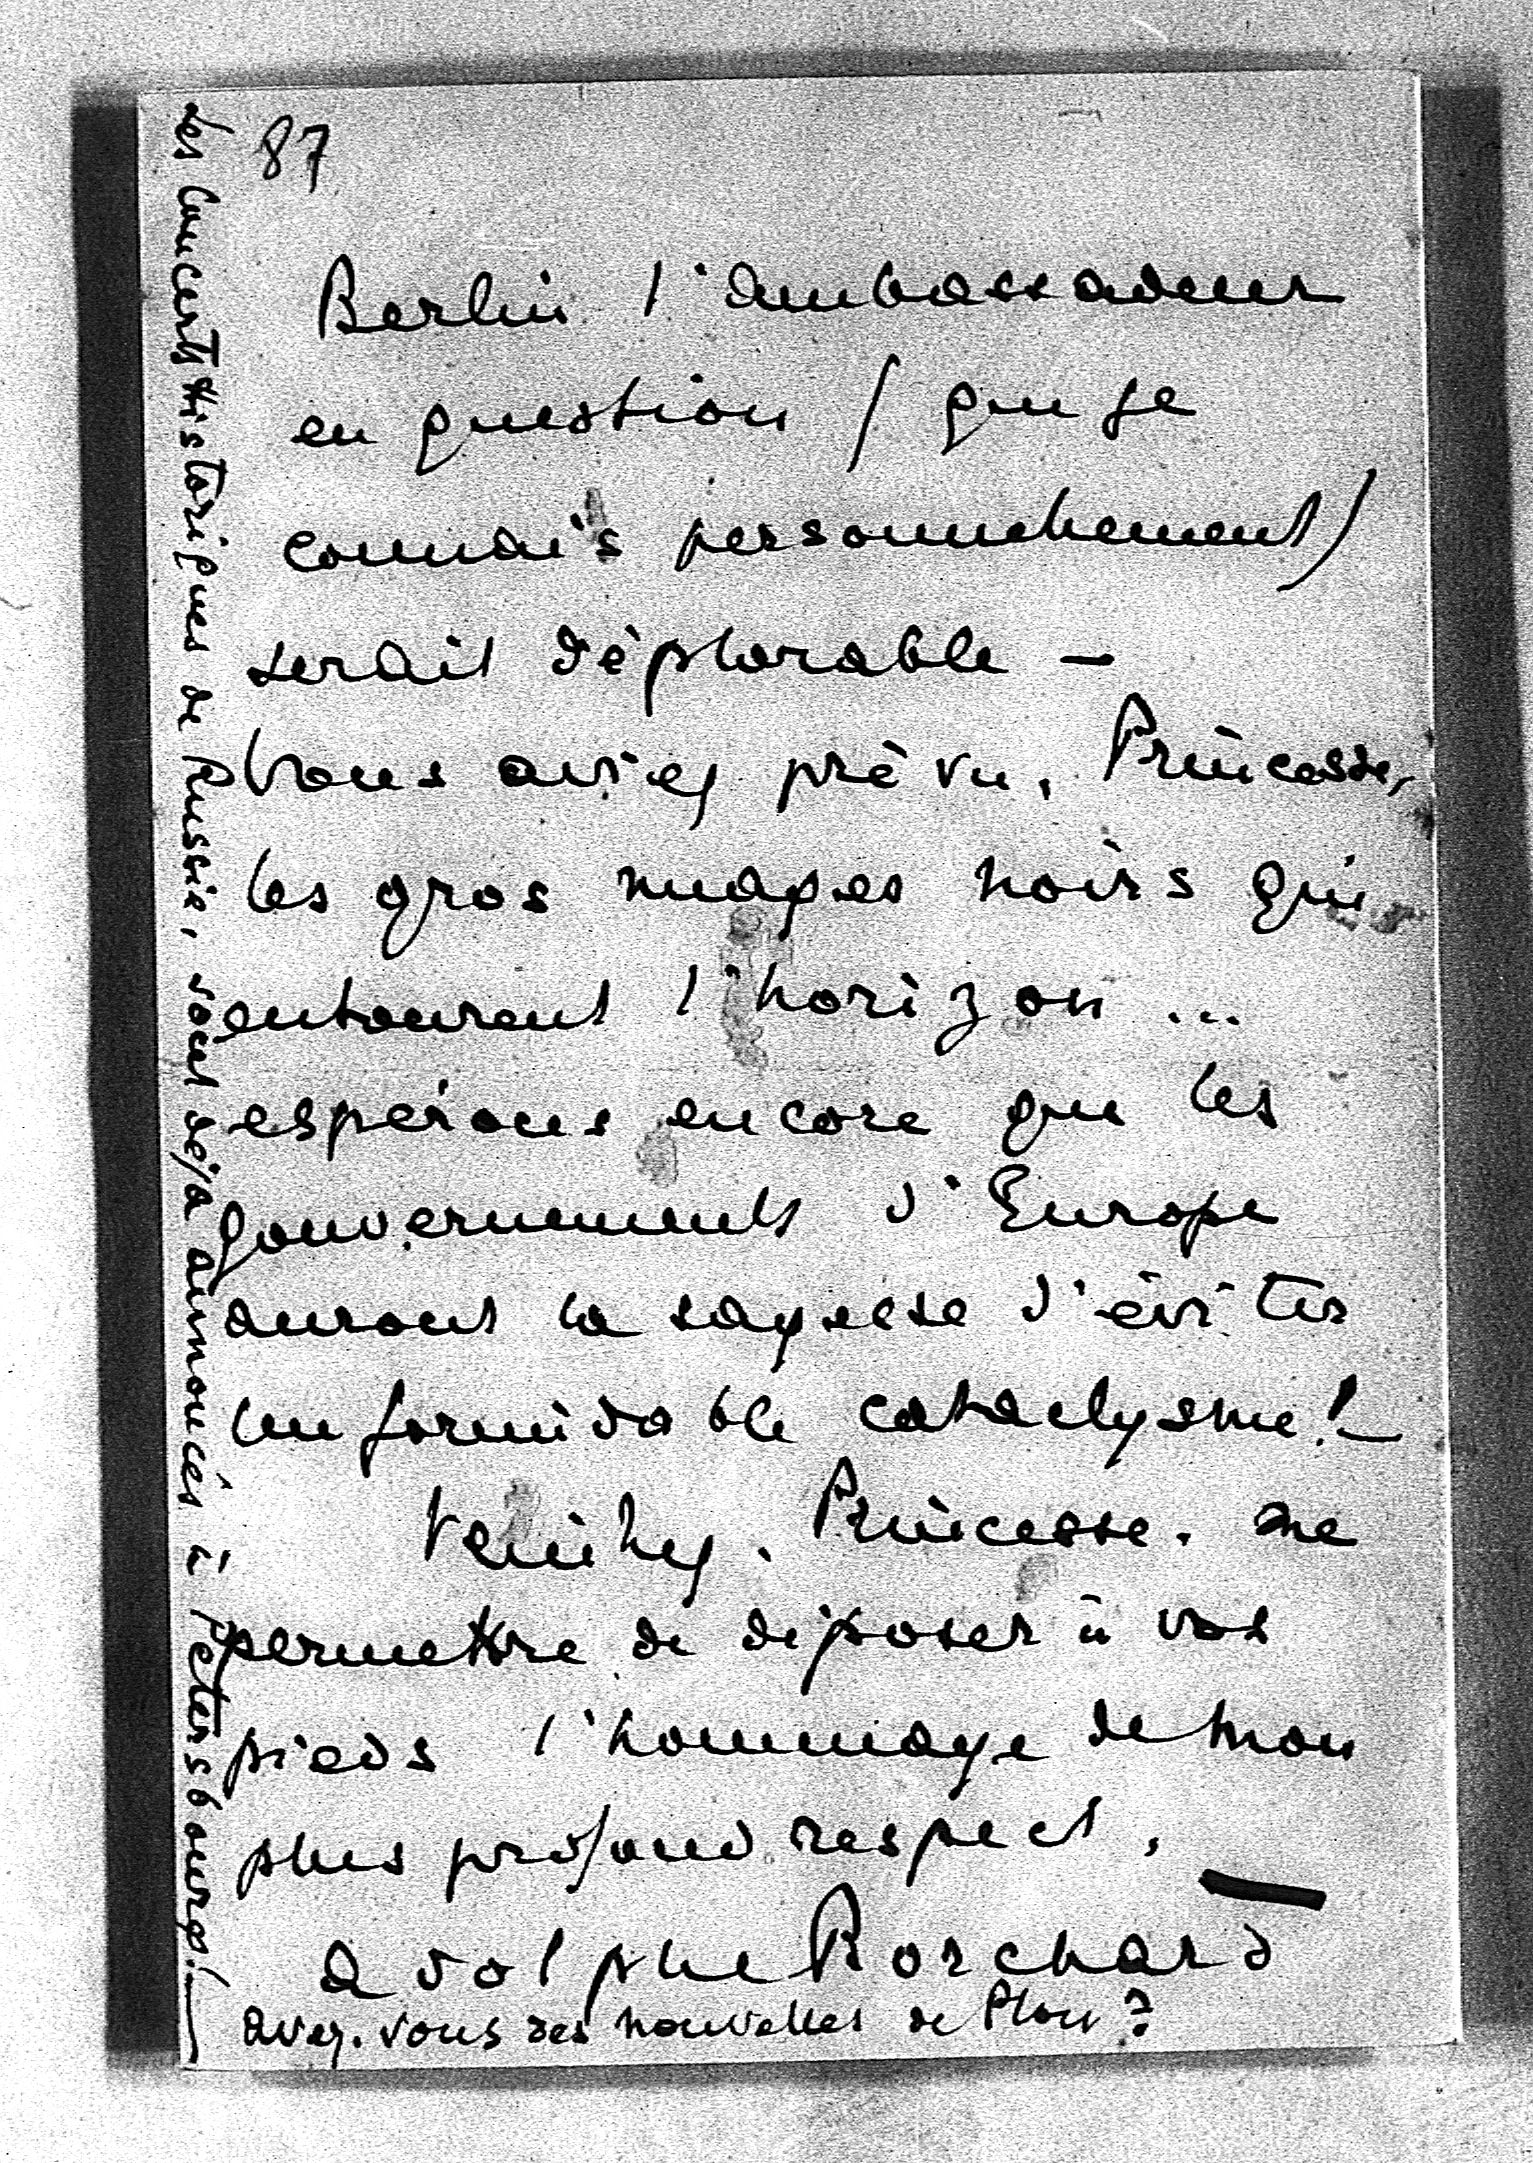 87
Berlin l'ambassadeur
en question (que je
connais personnellement)
serait déplorable —
Vous aviez prévu, Princesse,
les gros nuages noirs qui
entourent l'horizon ...
espérons encore que les
gouvernements d'Europe
auront la sagesse d'éviter
un formidable cataclysme! —
Veuillez, Princesse, me
permettre de déposer à vos
pieds l'hommage de mon
plus profond respect. —
Adolphe Borchard
avez-vous des nouvelles de Plon?
Les Concerts Historiques de Russie, sont déjà annoncés à Petersbourg! —